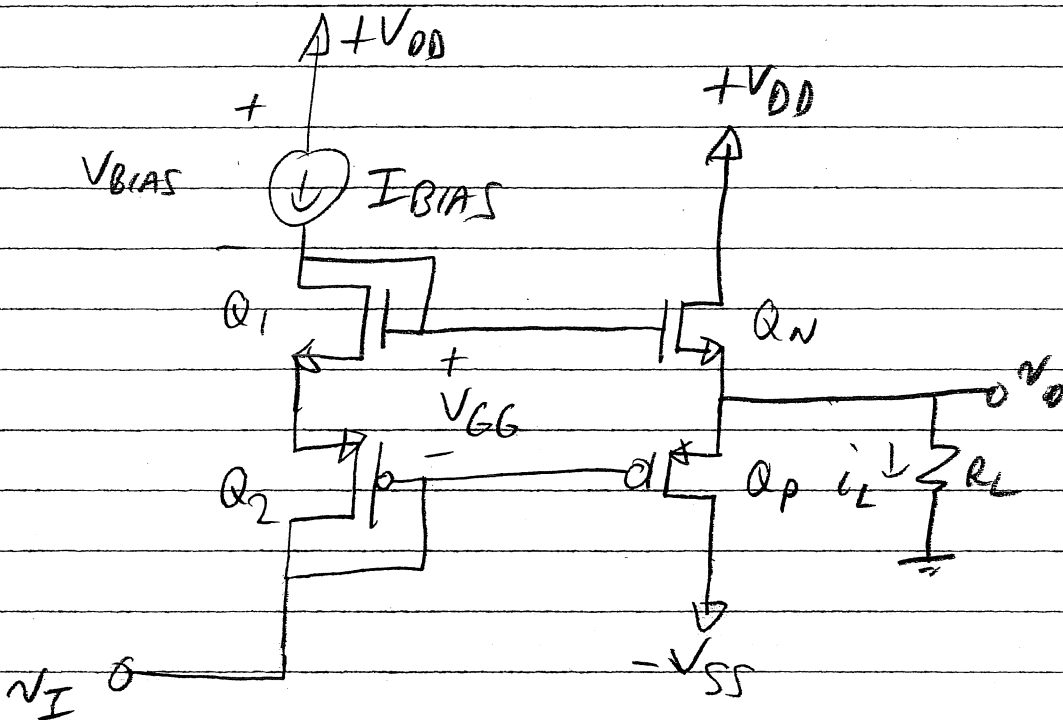 +VDD
+VDD
+
VBIAS
IBIAS
-
Q1
QN
+
VGG
-
vO
Q2
QP
iL
RL
-VSS
vI